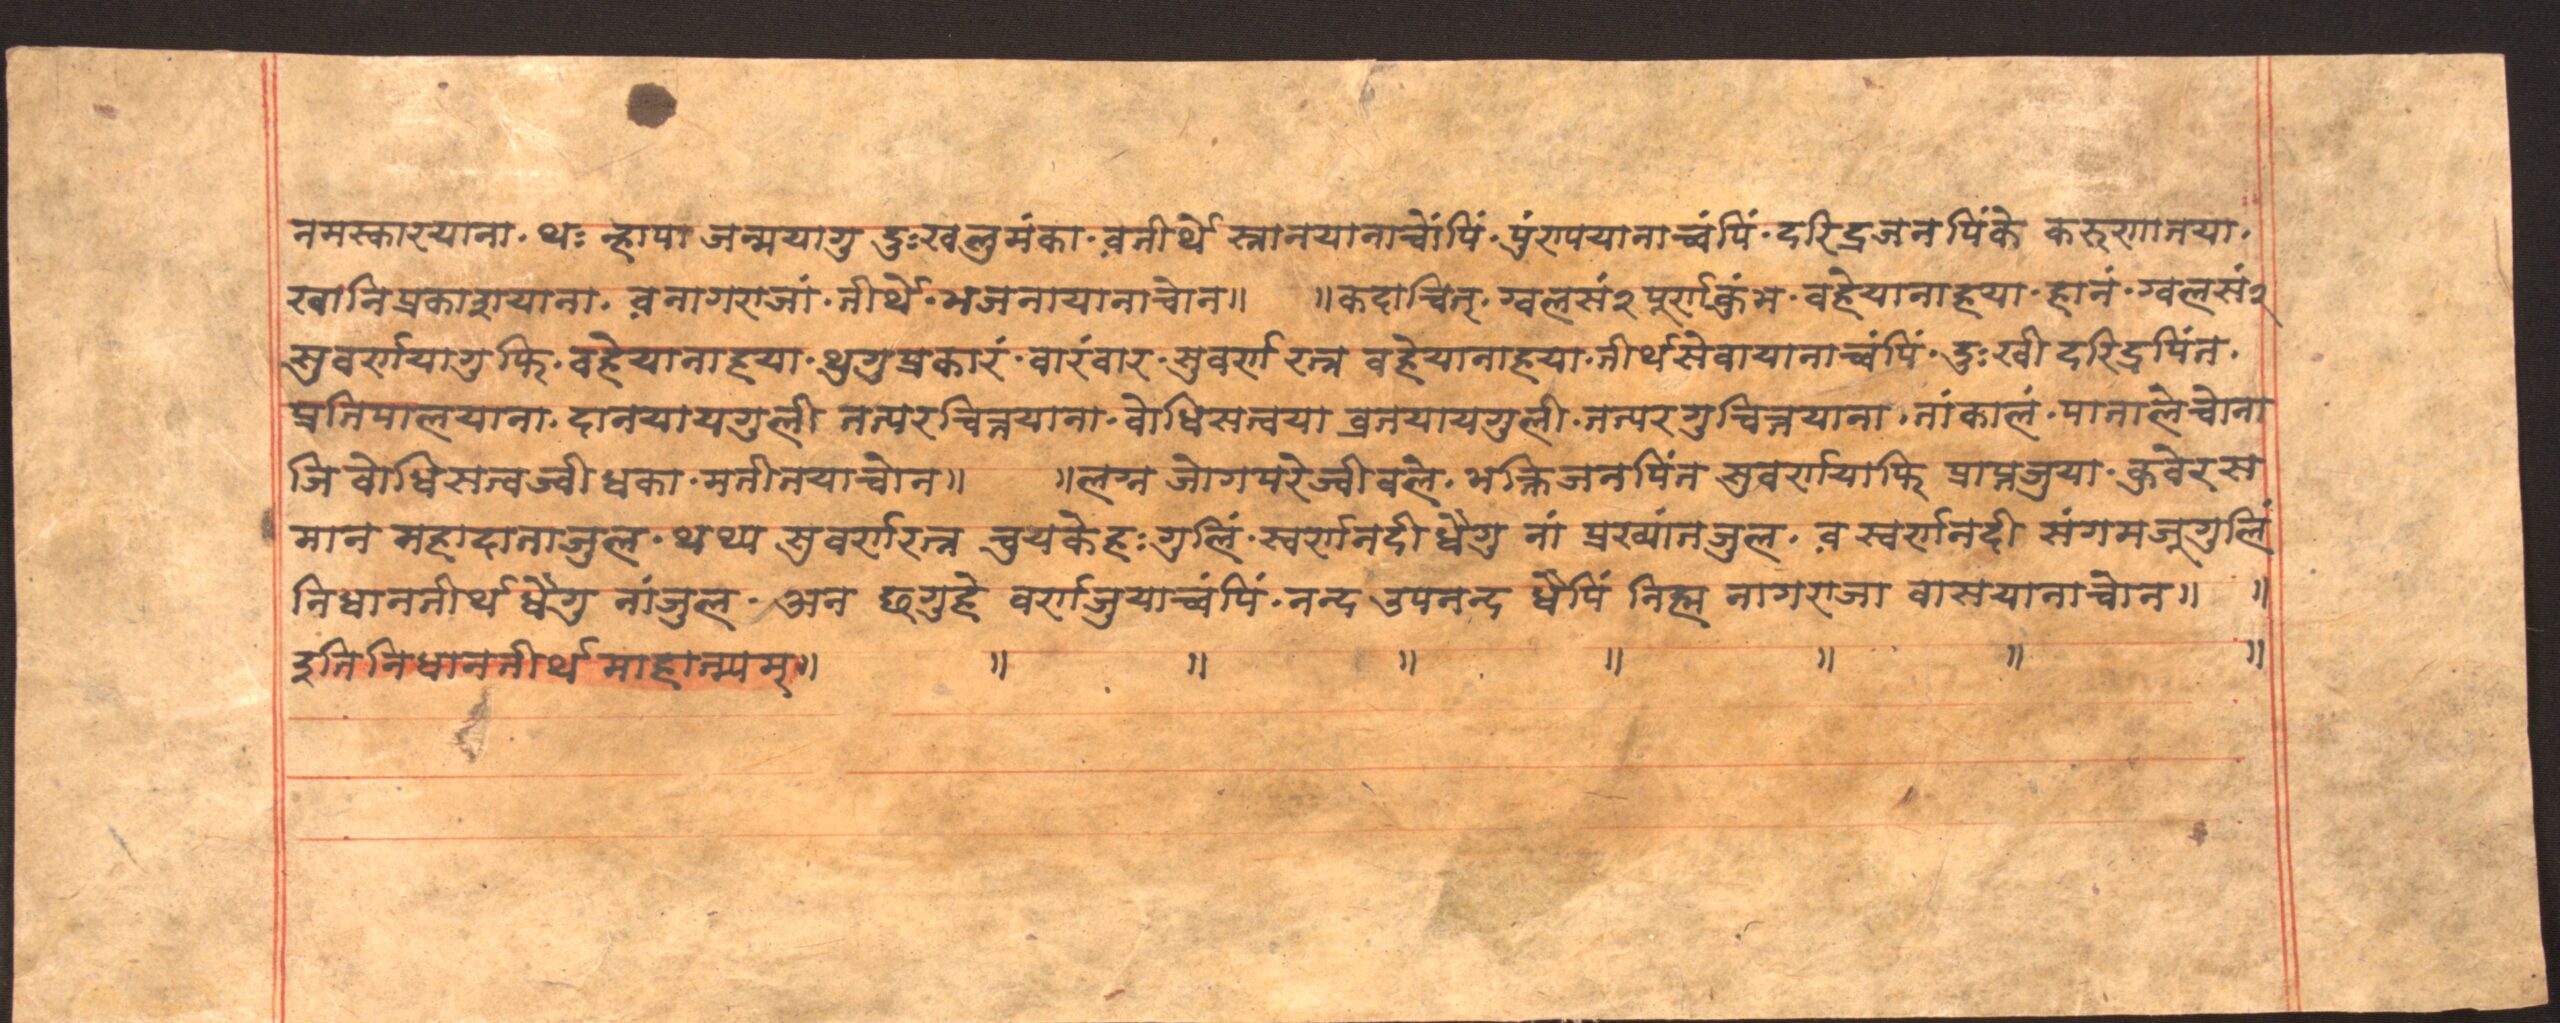 नमस्कारयाना· थः न्हापा जन्मयागु दुःखलुमंका· व़तीर्थे स्नानयानाच्वोंपिं· पुंरापयानाच्वंपिं· दरिद्रजनपिंके करूणातया·
खानिप्रकाशयाना· व़नागराजां· तीर्थे· भजनायानाचोन॥ ॥कदाचित्· ग्वलसं२ पूर्णकुंभ· वहेयानाहया· हानं· ग्वलसं२
सुवर्णयागु फि· वहेयानाहया· थुगुप्रकारं· वारंवार· सुवर्ण रत्न वहेयानाहया· तीर्थसेवायानाच्वंपिं· दुःखी दरिद्रपिंत·
प्रतिपालयाना· दानयायगुली तत्परचित्तयाना· वोधिसत्वया व्रतयायगुली· तत्परगुचित्तयाना· नांकालं· पातालेचोना
जि वोधिसत्वज्वी धका· मतीतयाचोन॥ ॥लग्न जोगपरेज्वीवले· भक्तिजनपिंत सुवर्णयाफि प्राप्तजुया· कुवेरस
मान महादाताजुल· थथ्य सुवर्णरत्न चुयकेहःगुलिं· स्वर्णनदी धैगु नां प्रख्यांतजुल· व़ स्वर्णनदी संगमजूगुलिं
निधानतीर्थ धैगु नांजुल· अन छगुहे वर्णजुयाच्वंपिं· नन्द उपनन्द धैपिं निह्म नागराजा वासयानाचोन॥ ॥
इति निधानतीर्थ माहात्म्यम्॥ ॥ ॥ ॥ ॥ ॥ ॥ ॥